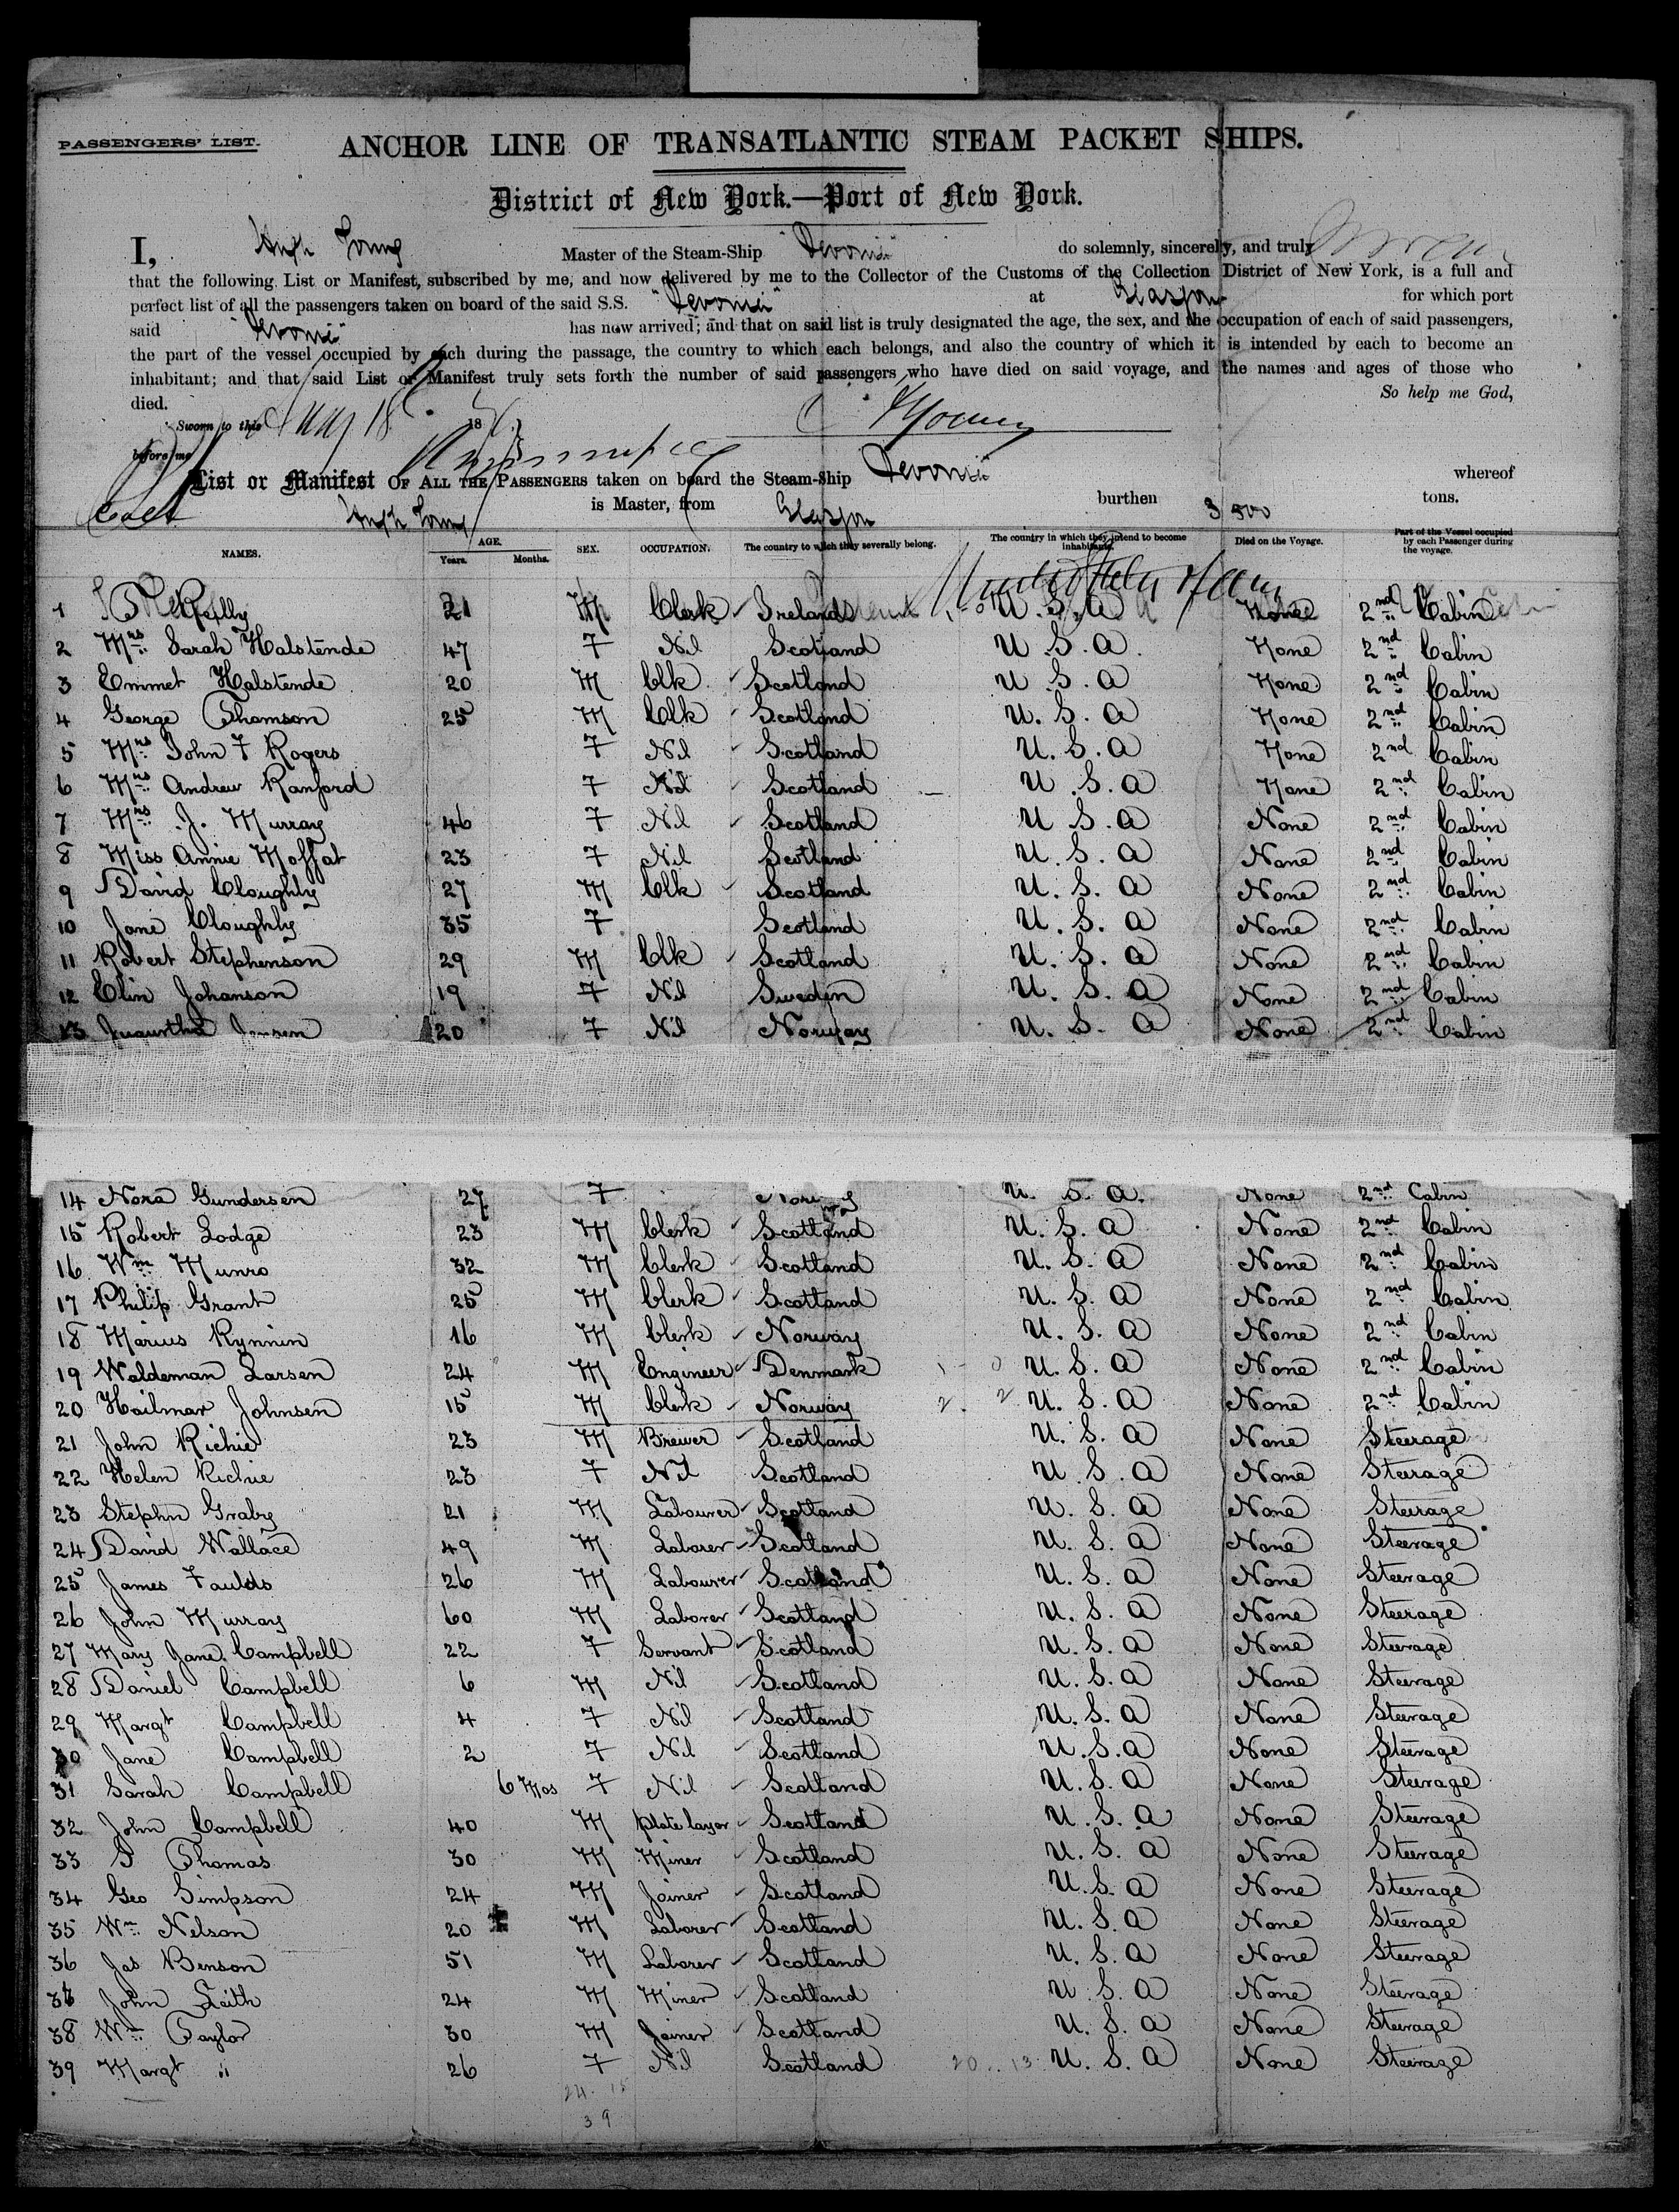 PASSENGERS' LIST.
ANCHOR LINE OF TRANSATLANTIC STEAM PACKET SHIPS.
District of New York.—Port of New York.
I, Hugh Young Master of the Steam-Ship "Devonia" do solemnly, sincerely, and truly
that the following List or Manifest, subscribed by me, and now delivered by me to the Collector of the Customs of the Collection District of New York, is a full and
perfect list of all the passengers taken on board of the said S.S. "Devonia" at Glasgow for which port
said "Devonia" has now arrived; and that on said list is truly designated the age, the sex, and the occupation of each of said passengers,
the part of the vessel occupied by each during the passage, the country to which each belongs, and also the country of which it is intended by each to become an
inhabitant; and that said List or Manifest truly sets forth the number of said passengers who have died on said voyage, and the names and ages of those who
died. So help me God,
Sworn to this May 18 18 H Young
before me
List or Manifest OF ALL THE PASSENGERS taken on board the Steam-Ship Devonia whereof
Hugh Young is Master, from Glasgow burthen 3500 tons.
NAMES. AGE. Years. Months. SEX. OCCUPATION. The country to which they severally belong. The country in which they intend to become inhabitants. Died on the Voyage. Part of the Vessel occupied by each Passenger during the voyage.
1 Reilly 21 M Clerk Ireland U.S.A None 2nd Cabin
2 Mrs Sarah Halstende 47 F Nil Scotland U.S.A. None 2nd Cabin
3 Emmet Halstende 20 M Clk Scotland U.S.A None 2nd Cabin
4 George Thomson 25 M Clk Scotland U.S.A None 2nd Cabin
5 Mrs John F Rogers F Nil Scotland U.S.A None 2nd Cabin
6 Mrs Andrew Ranford F Nil Scotland U.S.A None 2nd Cabin
7 Mrs J. Murray 46 F Nil Scotland U.S.A None 2nd Cabin
8 Miss Annie Moffat 23 F Nil Scotland U.S.A None 2nd Cabin
9 David Cloughly 27 M Clk Scotland U.S.A None 2nd Cabin
10 Jane Cloughly 35 F Scotland U.S.A None 2nd Cabin
11 Robert Stephenson 29 M Clk Scotland U.S.A None 2nd Cabin
12 Elin Johanson 19 F Nil Sweden U.S.A None 2nd Cabin
13 Jensen 20 F Nil Norway U.S.A None 2nd Cabin
14 Nora Gundersen 27 F Norway U.S.A. None 2nd Cabin
15 Robert Lodge 23 M Clerk Scotland U.S.A None 2nd Cabin
16 Wm Munro 32 M Clerk Scotland U.S.A None 2nd Cabin
17 Philip Grant 25 M Clerk Scotland U.S.A None 2nd Cabin
18 Marius Rynnin 16 M Clerk Norway U.S.A None 2nd Cabin
19 Waldeman Larsen 24 M Engineer Denmark U.S.A None 2nd Cabin
20 Hailmar Johnsen 15 M Clerk Norway U.S.A None 2nd Cabin
21 John Richie 23 M Brewer Scotland U.S.A None Steerage
22 Helen Richie 23 F Nil Scotland U.S.A None Steerage
23 Stephn Graby 21 M Labourer Scotland U.S.A None Steerage
24 David Wallace 49 M Laborer Scotland U.S.A None Steerage
25 James Faulds 26 M Labourer Scotland U.S.A None Steerage
26 John Murray 60 M Laborer Scotland U.S.A None Steerage
27 Mary Jane Campbell 22 F Servant Scotland U.S.A None Steerage
28 Daniel Campbell 6 M Nil Scotland U.S.A None Steerage
29 Margt Campbell 4 F Nil Scotland U.S.A None Steerage
30 Jane Campbell 2 F Nil Scotland U.S.A None Steerage
31 Sarah Campbell 6 Mos F Nil Scotland U.S.A None Steerage
32 John Campbell 40 M Plate layer Scotland U.S.A None Steerage
33 Thomas 30 M Miner Scotland U.S.A None Steerage
34 Geo Simpson 24 M Joiner Scotland U.S.A None Steerage
35 Wm Nelson 20 M Laborer Scotland U.S.A None Steerage
36 Jas Benson 51 M Laborer Scotland U.S.A None Steerage
38 John Leith 24 M Miner Scotland U.S.A None Steerage
38 Wm Taylor 30 M Joiner Scotland U.S.A None Steerage
39 Margt " 26 F Nil Scotland 20 13 U.S.A None Steerage
24 15
39